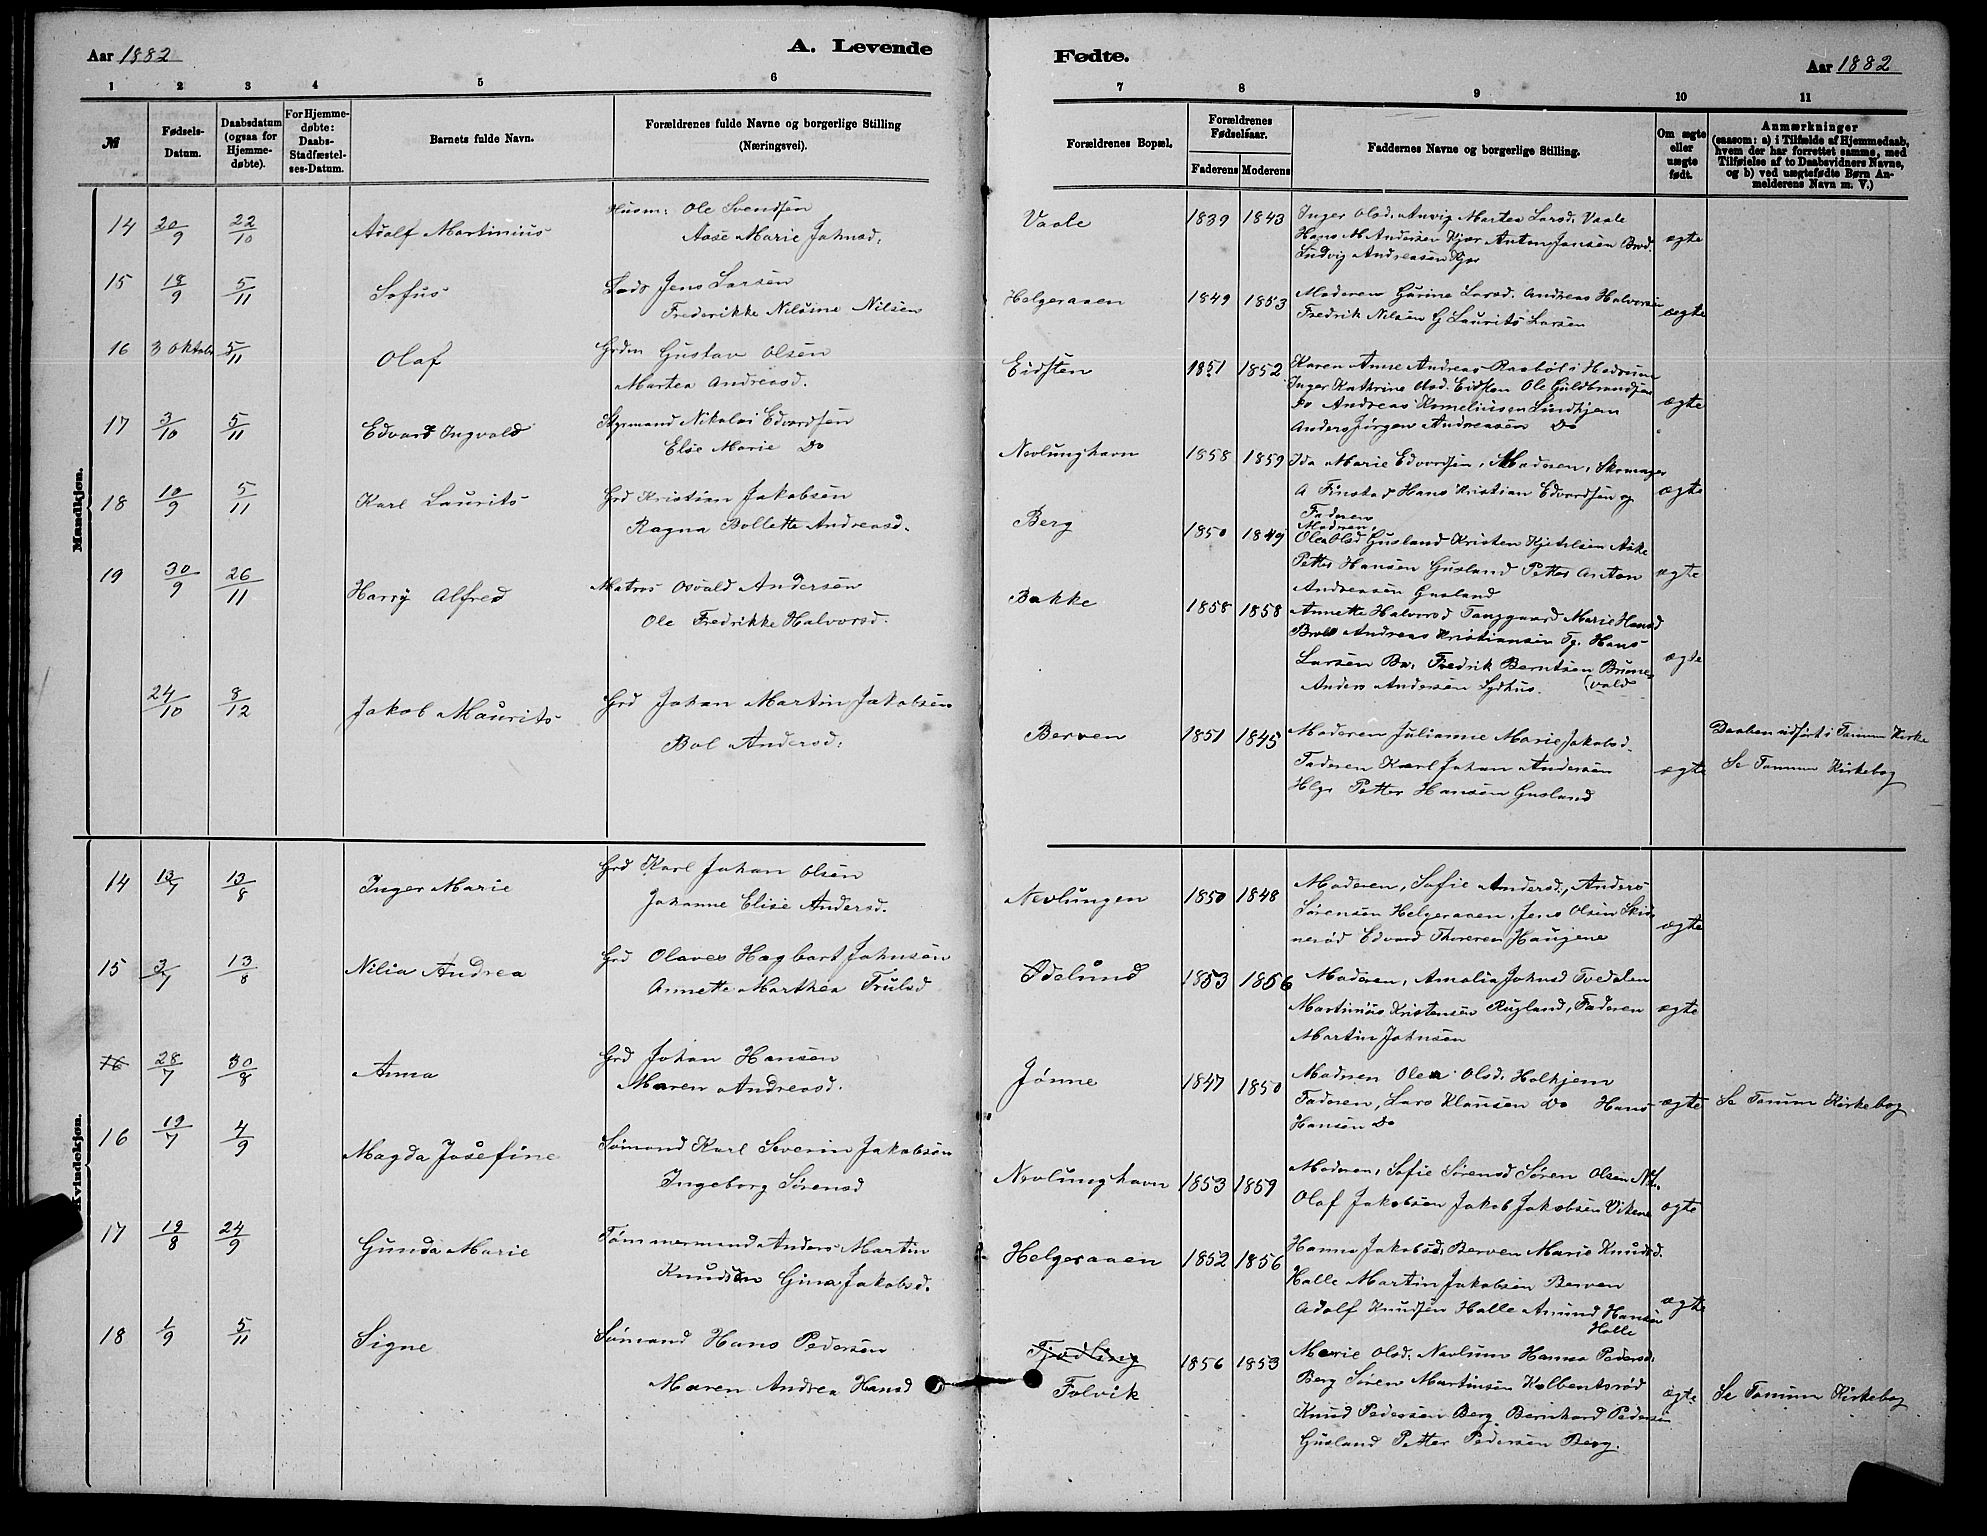 Aar 1882
A. Levende
Fødte.
Aar 1882
1 2 3 4 5 6 7 8 9 10 11
№
Fødsels-
Datum.
Daabsdatum
(ogsaa for
Hjemme-
døbte).
For Hjemme-
døbte:
Daabs-
Stadfæstel-
ses-Datum.
Barnets fulde Navn.
Forældrenes fulde Navne og borgerlige Stilling
(Næringsvei).
Forældrenes Bopæl.
Forældrenes
Fødselsaar.
Faderens Moderens
Faddernes Navne og borgerlige Stilling.
Om ægte
eller
uægte
født.
Anmærkninger
(saasom: a) i Tilfælde af Hjemmedaab,
hvem der har forrettet samme, med
Tilføielse af to Daabsvidners Navne,
og b) ved uægtefødte Børn An-
melderens Navn m. V.)
Mandkjøn.
14 20/9 22/10 Adolf Martinius
Husm: Ole Svendsen
Aase Marie Johnsd.
Vaale 1839 1843
Inger Olsd. Anvig Martea Larsd. Vaale
Hans M Andersen Kjær Anton Jansen Brod.
Ludvig Andreasen Kjær
ægte
15 18/9 5/11 Sofus
Lods Jens Larsen
Frederikke Nilsine Nilsen
Helgeraaen 1849 1853
Moderen Gurine Larsd. Andreas Halvorsen
Fredrik Nilsen & Laurits Larsen
ægte
16 3 Oktob 5/11 Olaf
Grdm Gustav Olsen
Martea Andreasd.
Eidsten 1851 1852
Karen Anne Andreas Rasbøl i Hedrum
Inger Kathrine Olsd. Eidsten Ole Guldbrandsen
Do Andreas Korneliusen Lindhjem
Anders Jørgen Andreasen Do
ægte
17 3/10 5/11 Edvard Ingvald
Styrmand Nikolai Edvardsen
Elise Marie Do
Nevlunghavn 1858 1859
Ida Marie Edvardsen, Moderen, Skomager
A Finstad Hans Kristian Edvardsen og
Faderen
ægte
18 10/9 5/11 Karl Laurits
Grd Kristian Jakobsen
Ragna Bollette Andreasd.
Berg 1850 1849
Moderen,
Olea Olsd Gusland Kristen Kjetilsen Aske
Petter Hansen Gusland Petter Anton
Andreasen Gusland
ægte
19 30/9 26/11 Harry Alfred
Matros Osvald Andersen
Ole Fredrikke Halvorsd.
Bakke 1858 1858
Annette Halvorsd Tanggaard Marie Hansd
Andreas Kristiansen Tg. Hans
Larsen Ba. Fredrik Berntsen Brunes
Anders Andersen Sydhus. (vald
ægte
24/10 8/12 Jakob Maurits
Grd Johan Martin Jakobsen
Bol Andersd.
Berven 1851 1845
Moderen Julianne Marie Jakobsd.
Faderen Karl Johan Andersen
Hlgr Petter Hansen Gusland
ægte
Daaben udført i Tanum Kirke
Se Tanum Kirkebog
Kvindekjøn.
14 13/7 13/8 Inger Marie
Grd Karl Johan Olsen
Johanne Elise Andersd.
Nevlungen 1850 1848
Moderen, Sofie Andersd., Anders
Sørensen Helgeraaen, Jens Olsen Skin
nerød Edvard Thoresen Haugene
ægte
15 3/7 13/8 Nilia Andrea
Grd Olaves Hagbart Johnsen
Annette Marthea Trulsd
Ødelund 1853 1856
Moderen, Amalia Johnsd Tvedalen
Martinius Kristensen Rugland, Faderen
Martin Johnsen
ægte
16 28/7 30/8 Anna
Grd Johan Hansen
Maren Andreasd.
Jønne 1847 1850
Moderen Olea Olsd. Holhjem
Faderen, Lars Klausen Do Hans
Hansen Do
ægte Se Tanum Kirkebog
16 19/7 4/9 Magda Josefine
Sømand Karl Severin Jakobsen
Ingeborg Sørensd
Nevlunghavn 1853 1859
Moderen, Sofie Sørensd Søren Olsen Nh.
Olaf Jakobsen Jakob Jakobsen Vikene
ægte
17 19/8 24/9 Gunda Marie
Tømmermand Anders Martin
Knudsen Gina Jakobsd.
Helgeraaen 1852 1856
Hanna Jakobsd. Berven Marie Knudsd.
Halle Martin Jakobsen Berven
Adolf Knudsen Halle Amund Hansen
Halle
ægte
18 1/9 5/11 Signe
Sømand Hans Pedersen
Maren Andrea Hansd
Tjodling
Folvik
1856 1853
Marie Olsd. Nevlung Hanna Pedersd.
Berg Søren Martinsen Kolbentsrød
Knud Pedersen Berg Bernhard Pedersen
Gusland Petter Pedersen Berg.
ægte Se Tanum Kirkebog